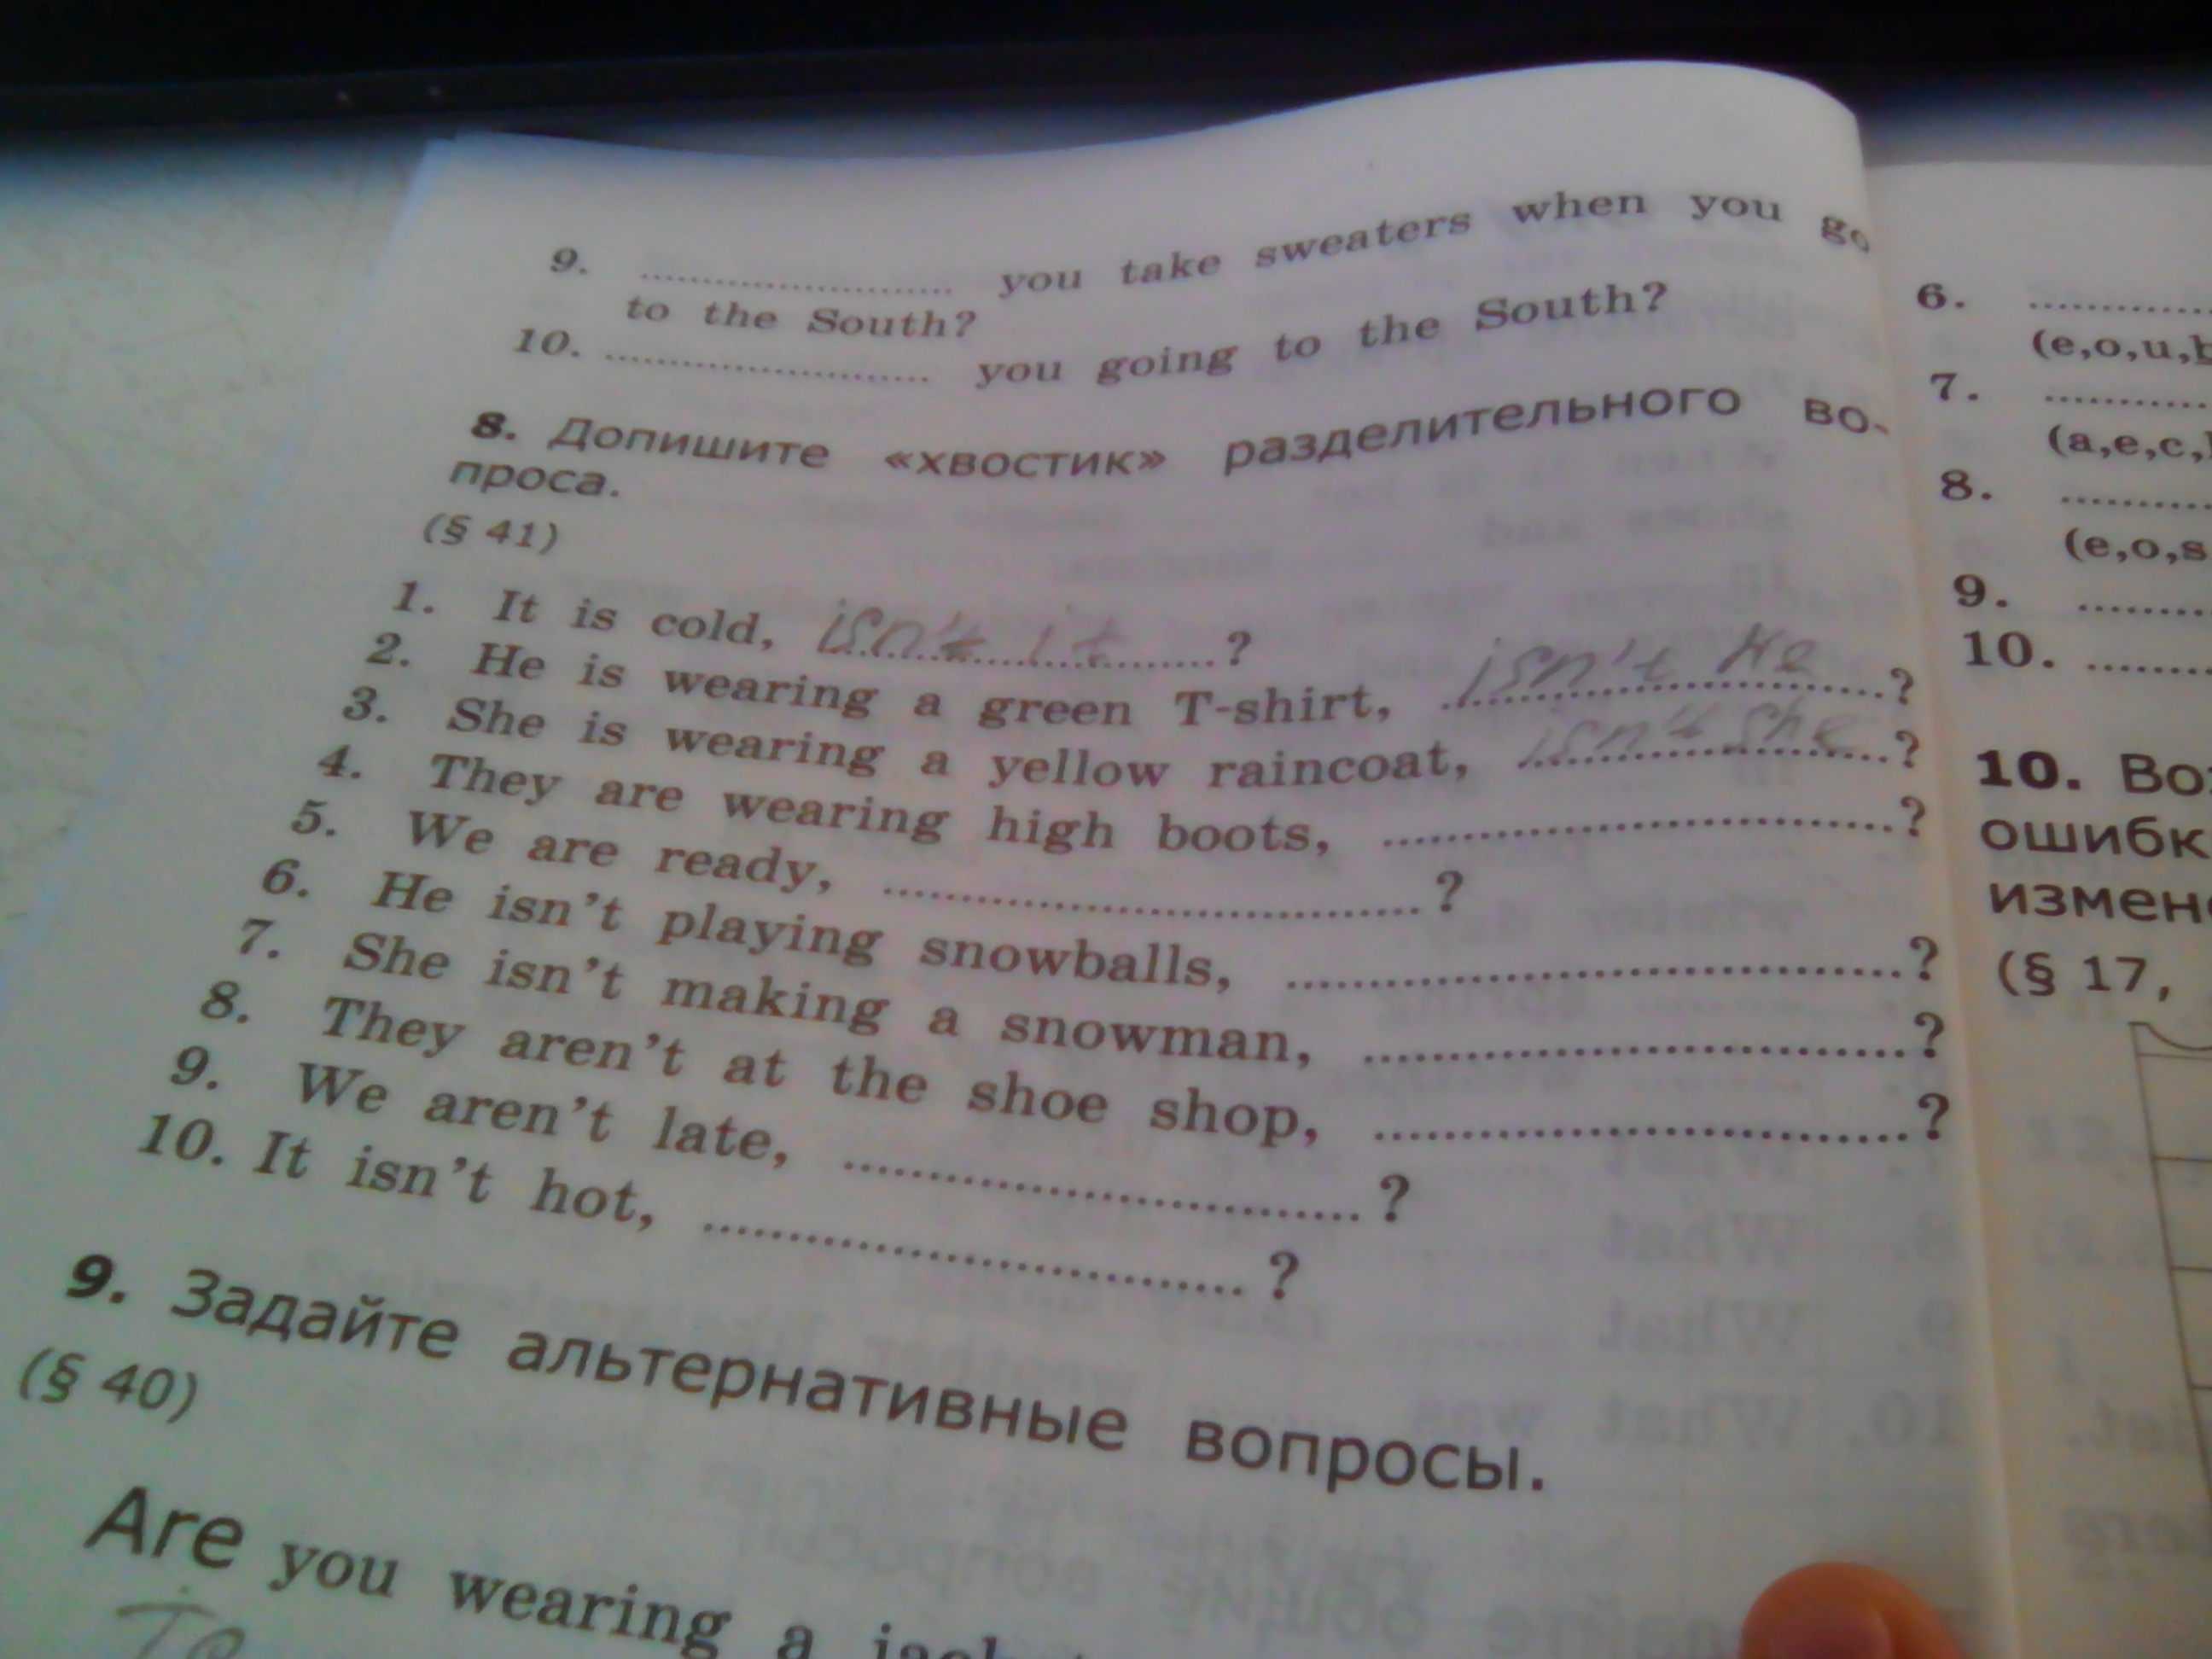 9. .......... you take sweaters when you go
to the South?
10. .......... you going to the South?
8. Допишите «хвостик» разделительного во-
проса.
(§ 41)
1. It is cold, isn't it ?
2. He is wearing a green T-shirt, isn't He ?
3. She is wearing a yellow raincoat, isn't she ?
4. They are wearing high boots, .......... ?
5. We are ready, .......... ?
6. He isn't playing snowballs, .......... ?
7. She isn't making a snowman, .......... ?
8. They aren't at the shoe shop, .......... ?
9. We aren't late, .......... ?
10. It isn't hot, .......... ?
9. Задайте альтернативные вопросы.
(§ 40)
Are you wearing a
6. ..........
(e,o,u,
7. ..........
(a,e,c,
8. ..........
(e,o,s
9. ..........
10. ..........
10. Во
ошибк
измен
(§ 17,